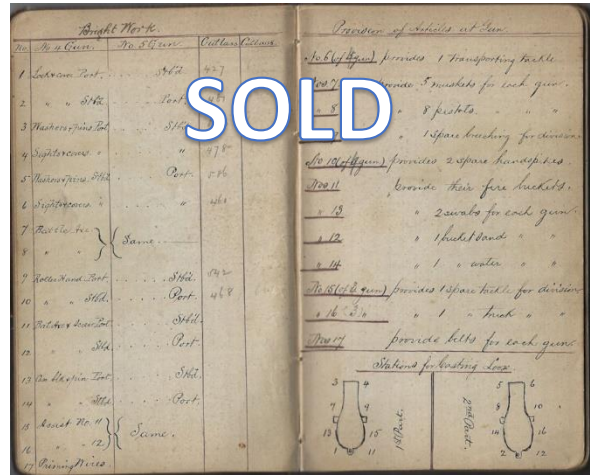 Bright Work.
No. No 4 Gun. No. 5 Gun. Cutlass Cutlass
1 Lock & cam Port. Stbd. 427
2 " " Stbd Port.
3 Washers & pins Port Stbd
4 Sights & covers " " 478
5 Washers & pins Stbd Port. 586
6 Sights & covers " " 460
7 Battle Axe
8 " } { Same.
9 Roller Hand. Port Stbd. 542
10 " " Stbd. Port. 468
11 Port Stbd.
12 Stbd Port.
13 pin Port Stbd.
14 " Stbd Port.
15 Assist No. 11
16 " 12 } { Same.
17 Priming Wires.
Provision of Articles at Gun
No. 6 (of gun) provides 1 Transporting tackle
Nos. 7 provide 5 muskets for each gun.
" 8 " 8 pistols. " " "
" 1 Spare breeching for division
No 10 (of gun) provides 2 spare handspikes.
Nos 11 provide their fire buckets.
" 13 " 2 swabs for each gun.
" 12 " 1 bucket sand " "
" 14 " 1 " water " "
No 15 (of gun) provides 1 spare tackle for division
" 16 " " 1 " truck " "
Nos 17 provide belts for each gun
Stations for Casting Loose.
3 4 5 6
7 9 8 10
13 15 14 16
1 11 2 12
1st Part.
2nd Part.
SOLD